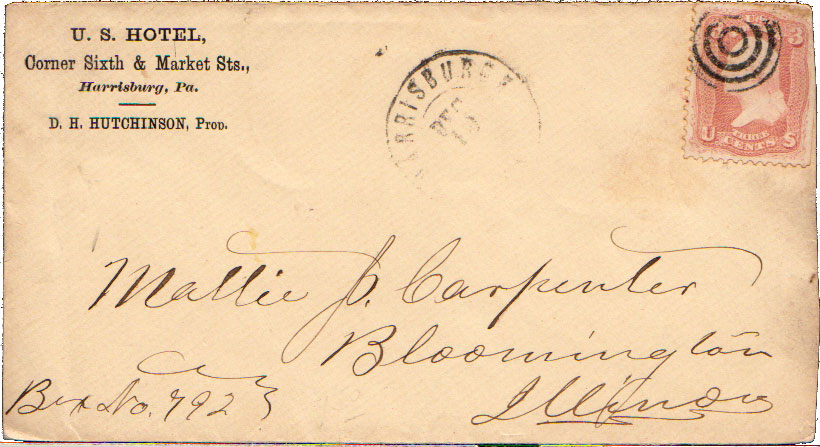 U. S. HOTEL,
Corner Sixth & Market Sts.,
Harrisburg, Pa.
D. H. HUTCHINSON, Prop.
HARRISBURG
DEC
3
U S
CENTS
Mattie J. Carpenter
Bloomington
Illinois
Box No. 792